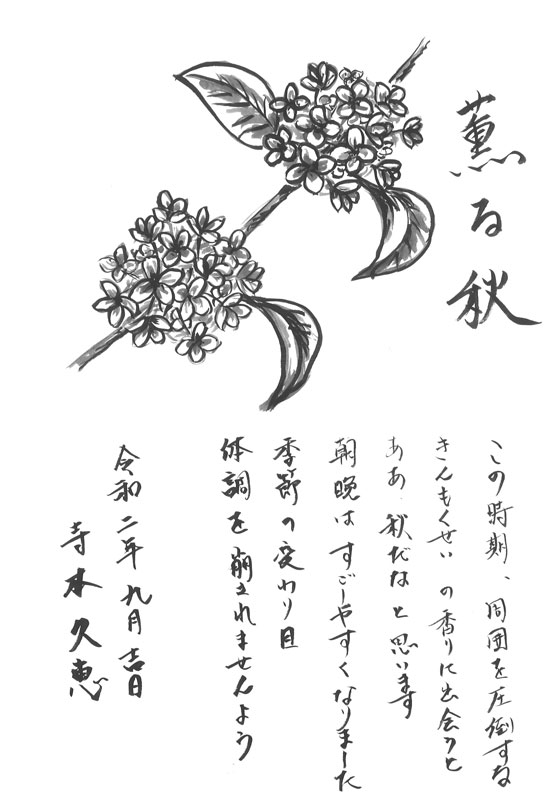 薫る秋
この時期、周囲を圧倒する
きんもくせいの香りに出会うと
ああ、秋だなと思います
朝晩はすごしやすくなりました
季節の変わり目
体調を崩されませんよう
令和二年九月吉日
寺本久恵